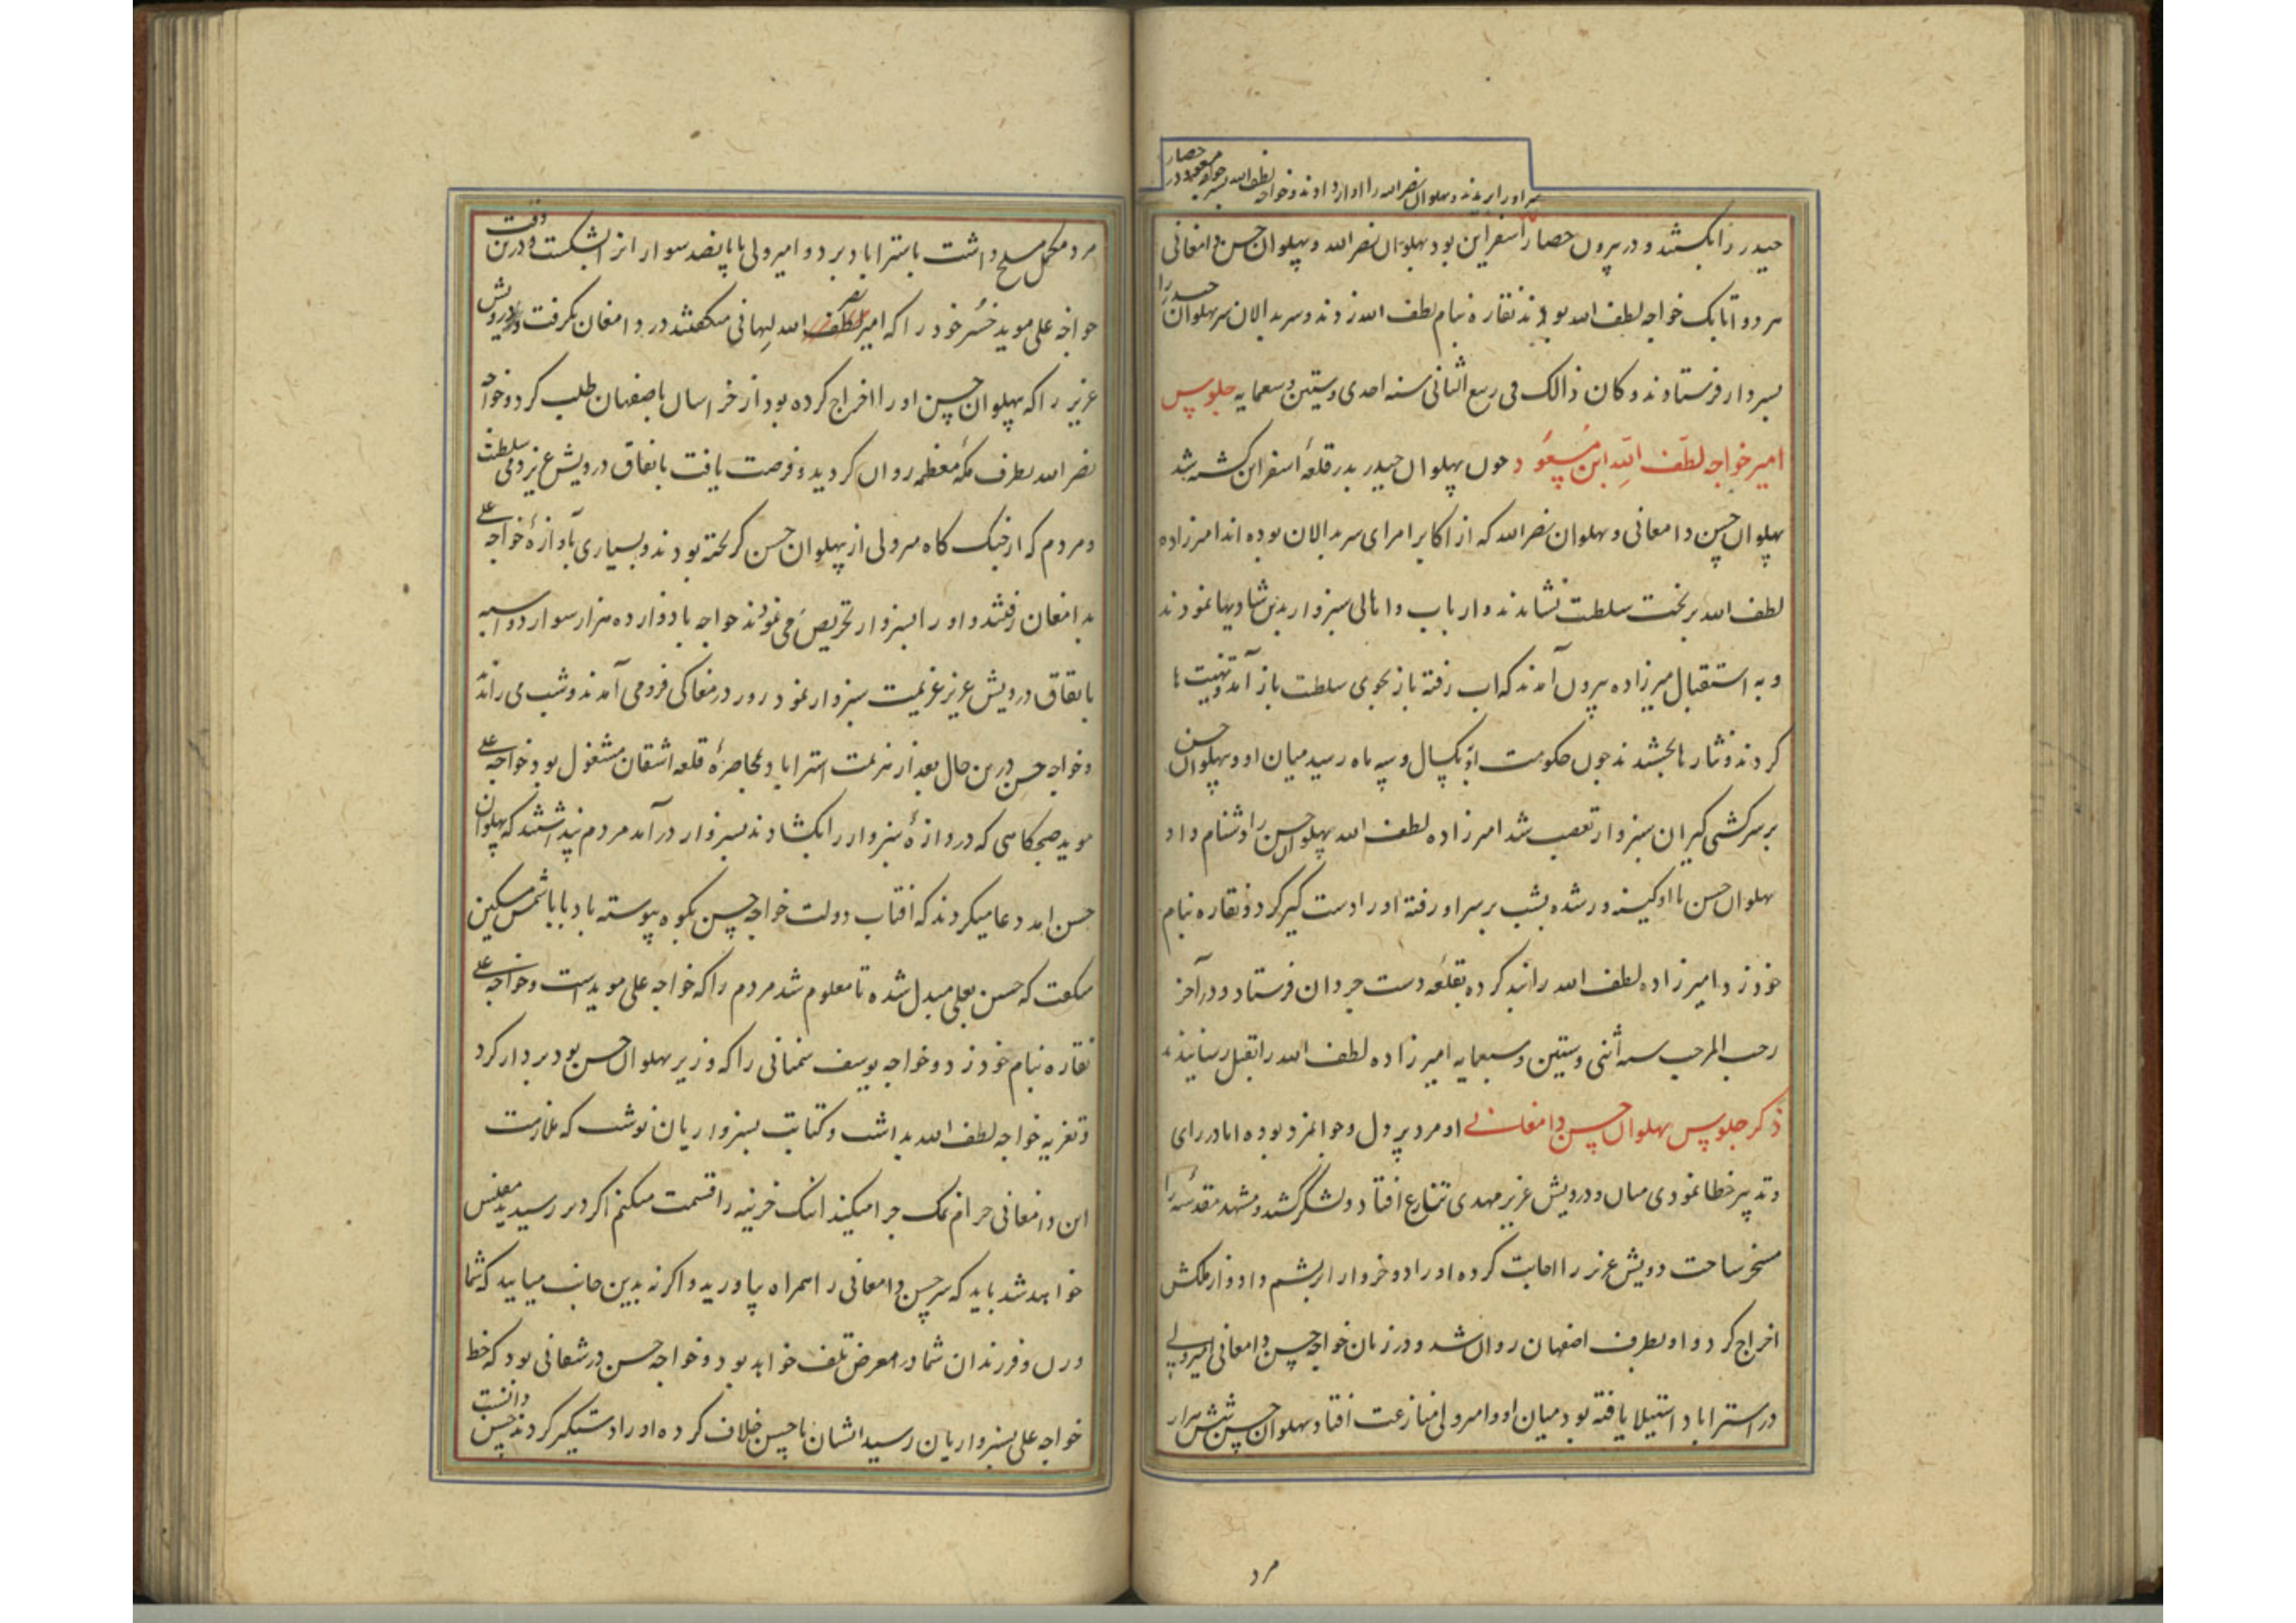 سر او را بریدند و پهلوان نصرالله را آواز دادند و خواجه لطف الله پسر خواجه مسعود در حصار
حیدر را بکشتند و در بیرون حصار اسفراین بود پهلوان نصرالله و پهلوان حسن دامغانی
هر دو اتابک خواجه لطف الله بودند نقاره بنام لطف الله زدند و سربدالان سر پهلوان حیدر را
بسبزوار فرستادند و کان ذالک فی ربیع الثانی سنه احدی و ستین و سبعمایه جلوس
امیر خواجه لطف الله ابن مسعود چون پهلوان حیدر بدر قلعهٔ اسفراین کشته شد
پهلوان حسن دامغانی و پهلوان نصرالله که از اکابر امرای سربدالان بوده اند امیرزاده
لطف الله بر تخت سلطنت نشاندند و ارباب و اهالی سبزوار بدین شادیها نمودند
و به استقبال میرزاده بیرون آمدند که آب رفته باز بجوی سلطنت باز آمد و تهنیت ها
کردند و نثارها بخشیدند چون حکومت او بیکسال و سه ماه رسید میان او و پهلوان حسن
بر سر کشتی کیران سبزوار تعصب شد امیرزاده لطف الله پهلوان حسن را دشنام داد
پهلوان حسن با او کینه ور شده بشب بر سر او رفته او را دست کیر کرد و نقاره بنام
خود زد و امیرزاده لطف الله را بند کرده بقلعه دست جردان فرستاد و در آخر
رجب المرجب سنه اثنی و ستین و سبعمایه امیرزاده لطف الله را بقتل رسانیدند
ذکر جلوس پهلوان حسن دامغانی او مرد پر دل و جوانمرد بوده اما در رای
و تدبیر خطا نمودی میان و درویش عزیز مهدی تنازع افتاد و لشکر کشید و مشهد مقدسه را
مسخر ساخت درویش عزیز را اجابت کرده او را دو خروار ابریشم داد و از ملکش
اخراج کرد و او بطرف اصفهان روان شد و در زمان خواجه حسن دامغانی امیر ولی
در استراباد استیلا یافته بود میان او و امیر ولی منازعت افتاد پهلوان حسن شش هزار
مرد
مرد مکمل مسلح داشت باستراباد برد و امیر ولی با پانصد سوار از او شکست و درین وقت
خواجه علی موید خسر خود را که امیر نصر الله لیهانی میکفتند در دامغان بکرفت و درویش
عزیز را که پهلوان حسن او را اخراج کرده بود از خراسان باصفهان طلب کرد و خواجه
نصرالله بطرف مکهٔ معظمه روان کردید و فرصت یافت باتفاق درویش عزیز دمی سلطنت
و مردم که از جنک کاه میر ولی از پهلوان حسن کریخته بودند و بسیاری بآوازهٔ خواجه علی
بدامغان رفتند و او را بسبزوار تحریص می نمودند خواجه با دوازده هزار سوار دو اسبه
باتفاق درویش عزیز عزیمت سبزوار نمود روز در مغاکی فرو می آمدند و شب می راندند
و خواجه حسن درین حال بعد از هزیمت استراباد بمحاصرهٔ قلعه اشقان مشغول بود خواجه علی
موید صبحکاهی که دروازهٔ سبزوار را بکشادند بسبزوار درآمد مردم پنداشتند که پهلوان
حسن آمد دعا میکردند که افتاب دولت خواجه حسن بکوه پیوسته باد بابا شمس مسکین
میکفت که حسن بعلی مبدل شده تا معلوم شد مردم را که خواجه علی موید است و خواجه علی
نقاره بنام خود زد و خواجه یوسف سمنانی را که وزیر پهلوان حسن بود بر دار کرد
و تعزیه خواجه لطف الله بداشت و کتابت بسبزواریان نوشت که ملازمت
این دامغانی حرام نمک چرا میکنید اینک خزینه را قسمت میکنم اکر دیر رسیدید مفلس
خواهید شد باید که سر حسن دامغانی را همراه بیاورید و اکر نه بدین جانب میایید که شما
و زن و فرزندان شما در معرض تلف خواهد بود و خواجه حسن در شقانی بود که خط
خواجه علی بسبزواریان رسید ایشان با حسن خلاف کرده او را دستیکیر کردند حسن دانست